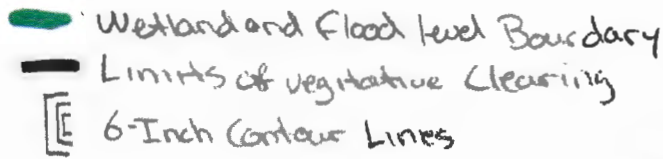 Wetland and Flood level Boundary
Limits of vegitative Clearing
6-Inch Contour Lines